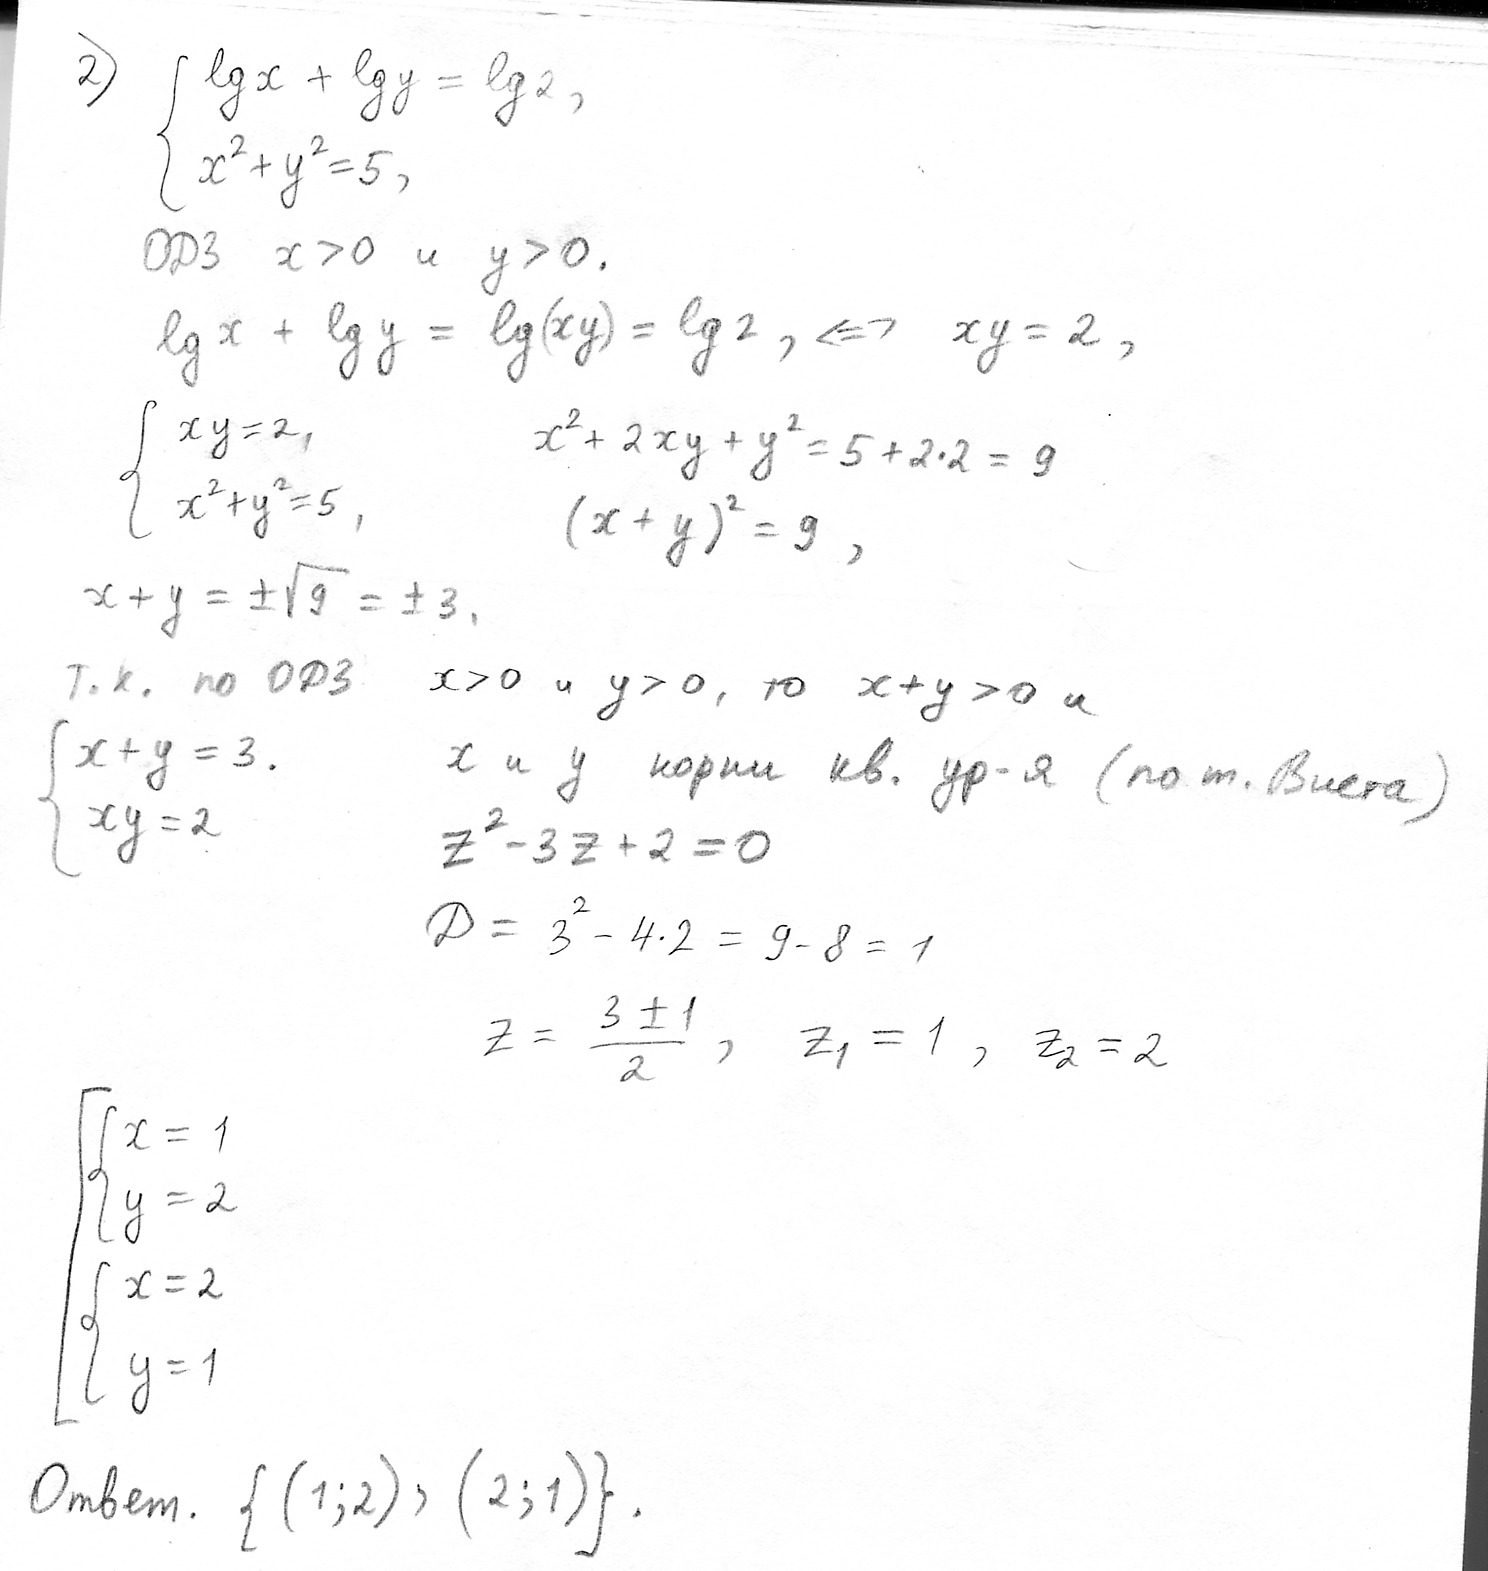 2) { lg x + lg y = lg 2,
x² + y² = 5,
ОДЗ x > 0 и y > 0.
lg x + lg y = lg(xy) = lg 2, <=> xy = 2,
{ xy = 2, x² + 2xy + y² = 5 + 2·2 = 9
x² + y² = 5, (x + y)² = 9,
x + y = ±√9 = ±3.
Т.к. по ОДЗ x > 0 и y > 0, то x + y > 0 и
{ x + y = 3. x и y корни кв. ур-я (по т. Виета)
xy = 2 z² - 3z + 2 = 0
D = 3² - 4·2 = 9 - 8 = 1
z = (3 ± 1)/2, z₁ = 1, z₂ = 2
[ { x = 1
y = 2
{ x = 2
y = 1
Ответ. {(1;2), (2;1)}.